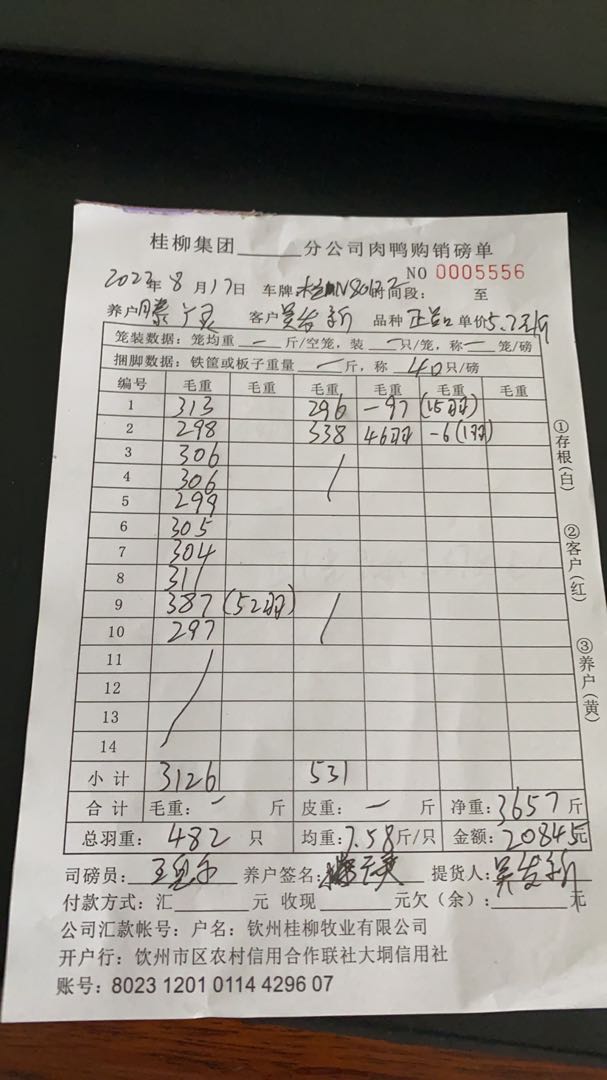 桂柳集团______分公司肉鸭购销磅单
NO 0005556
2022年8月17日 车牌 时间段： 至
养户 客户 吴发新 品种 正品 单价5.7元/斤
笼装数据：笼均重 — 斤/空笼，装 — 只/笼，称 — 笼/磅
捆脚数据：铁筐或板子重量 — 斤，称 40只/磅
编号 毛重 毛重 毛重 毛重 毛重 毛重
1 313 296 -97 (15羽)
2 298 338 46羽 -6(1羽)
3 306
4 306
5 299
6 305
7 304
8 311
9 387 (52羽)
10 297
11
12
13
14
小计 3126 531
合计 毛重：— 斤 皮重：— 斤 净重：3657斤
总羽重：482 只 均重：7.58斤/只 金额：20845元
司磅员： 养户签名： 提货人：吴发新
付款方式：汇______元 收现______元欠（余）：______元
公司汇款帐号：户名：钦州桂柳牧业有限公司
开户行：钦州市区农村信用合作联社大垌信用社
账号：8023 1201 0114 4296 07
①存根(白)
②客户(红)
③养户(黄)